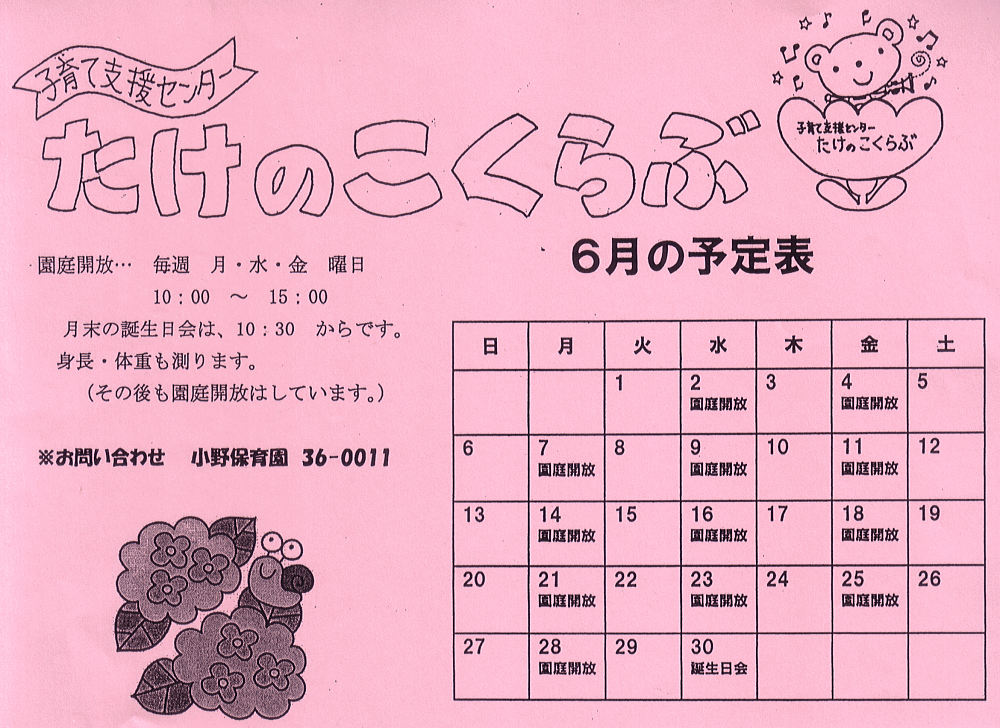 子育て支援センター
たけのこくらぶ
子育て支援センター
たけのこくらぶ
6月の予定表
園庭開放… 毎週 月・水・金 曜日
10:00 ～ 15:00
月末の誕生日会は、10:30 からです。
身長・体重も測ります。
(その後も園庭開放はしています。)
※お問い合わせ 小野保育園 36-0011
日 月 火 水 木 金 土
1 2 3 4 5
園庭開放 園庭開放
6 7 8 9 10 11 12
園庭開放 園庭開放 園庭開放
13 14 15 16 17 18 19
園庭開放 園庭開放 園庭開放
20 21 22 23 24 25 26
園庭開放 園庭開放 園庭開放
27 28 29 30
園庭開放 誕生日会